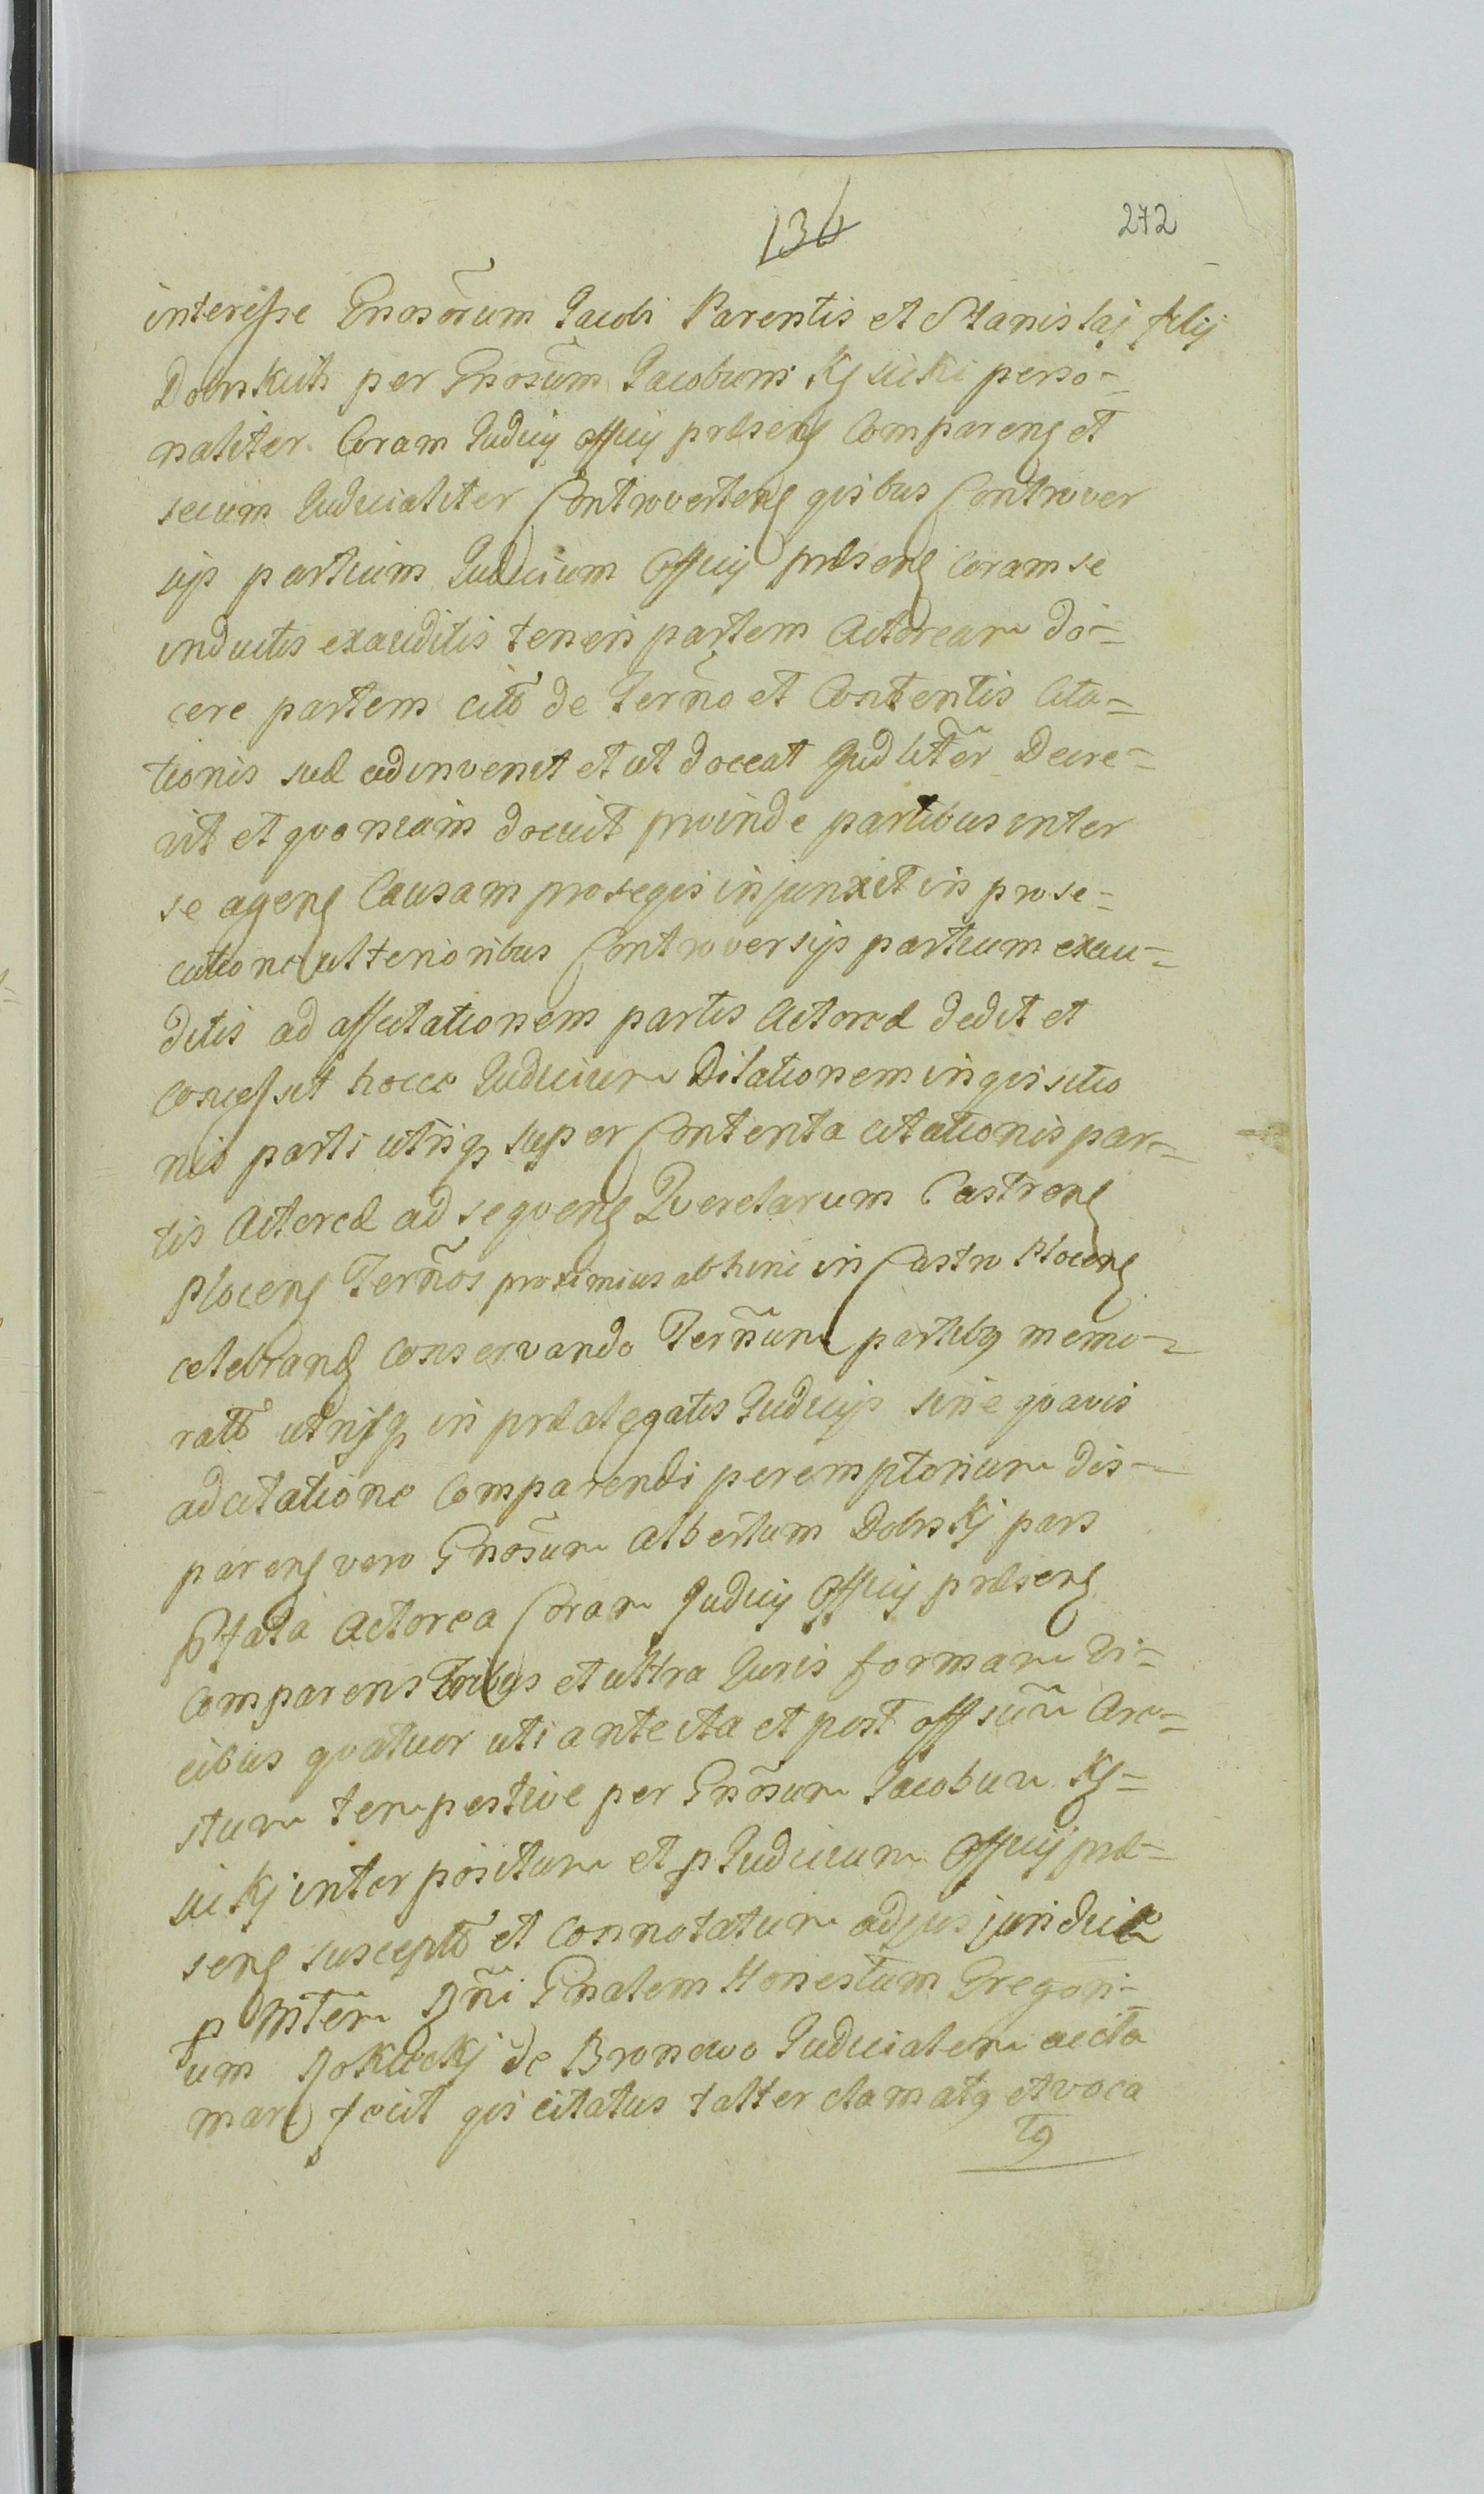 136
272
interesse Gnosõrum Jacobi Parentis et Stanislaj filij
Dobrskich per Gnosũm Jacobum Kęsicki perso=
naliter Coram Judicij officij præsenς Comparenς et
secum Judicialiter Controvertenς qisbus Controver
sijs partium Judicium Officij præsenς coram se
inductis exauditis teneri partem Actoream do=
cere partem citõ de Termõ et Contentis Cita=
tionis suæ adinvenit et ut doceat Judlitẽr Decre=
vit et qvoniam docuit proinde partibus inter
se agenς Causam proseqvi injunxit in prose=
cutione ulterioribus Controversijs partium exau=
ditis ad affectationem partis Actoreæ dedit et
concessit hocce Judicium Dilationem inqvisitio
nis parti utriq super Contenta citationis par=
tis Actoreæ ad seqvenς Qverelarum Castrenς
Plocenς Termõs proximius abhinc in Castro Plocenς
celebrandς Conservando Termũm partibq memo=
ratõ utrisq in præalegatis Judicijs sine qvavis
adcitatione Comparendi peremptorium dis=
parenς vero Gnosũm Albertum Dobrskj pars
Pfata Actorea Coram Judicij Officij præsenς
Comparens Toribus et ultra Juris formam Vi=
cibus qvatuor uti antecita et post offsũm Are=
stum tempestive per Gnosũm Jacobum Kę=
sickj interpositum et p Judicium Officij præ=
senς susceptõ et Connotatum ad jus juridice
p Mtẽrm Dñi Gnalem Honestum Gregori=
um de Bronowo Judicialem accla
mari fecit qis citatus taliter clamatq et voca
tq